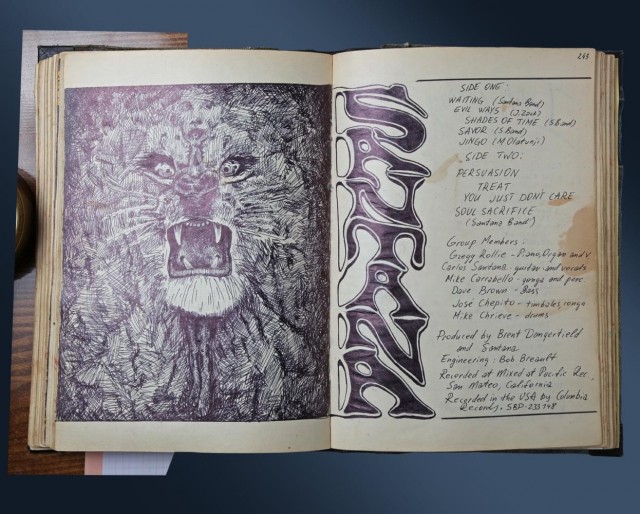 SANTANA
243
SIDE ONE:
WAITING (Santana Band)
EVIL WAYS (J. Zack)
SHADES OF TIME (S.Band)
SAVOR (S.Band)
JINGO (M.Olatunji)
SIDE TWO:
PERSUASION
TREAT
YOU JUST DON'T CARE
SOUL SACRIFICE
(Santana Band)
Group Members:
Gregg Rollie - Piano, Organ and v
Carlos Santana - guitar and vocals
Mike Carrabello - gonga and perc
Dave Brown - Bass
José Chepito - timbales, conga
Mike Chrieve - drums
Produced by Brent Dangerfield
and Santana
Engineering: Bob Breault
Recorded at Mixed at Pacific Rec,
San Mateo, California
Recorded in the USA by Columbia
Records. SBP-233148